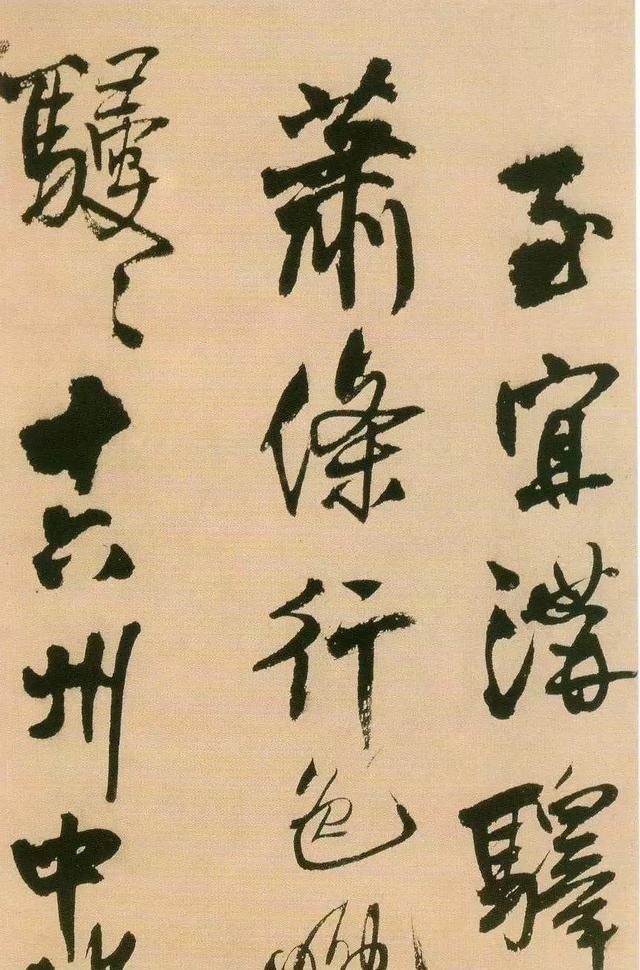 至宜溝驛
蕭條行色
駸〻十六州中